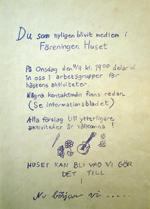 Du som nyligen blivit medlem i
Föreningen Huset
På Onsdag den 11/9 kl 19.00 delar vi
in oss i arbetsgrupper för
höstens aktiviteter.
Några kontaktmän finns redan.
(Se informationsbladet)
Alla förslag till ytterligare
aktiviteter är välkomna!
HUSET KAN BLI VAD VI GÖR
DET TILL
!
Nu börjar vi....